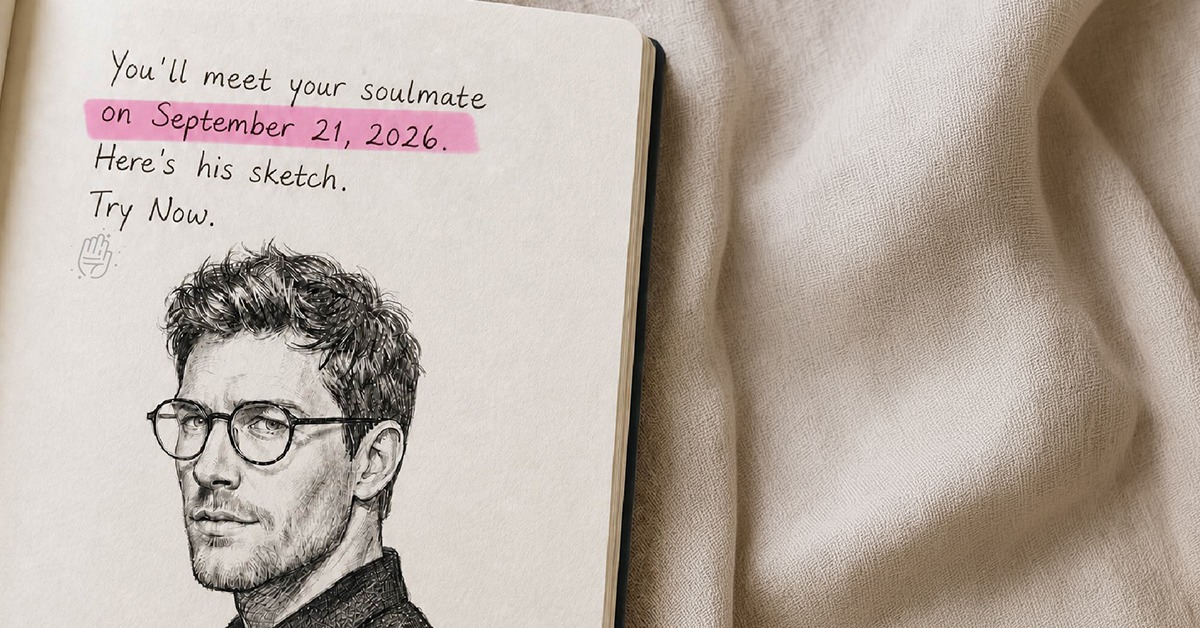 You'll meet your soulmate
on September 21, 2026.
Here's his sketch.
Try Now.